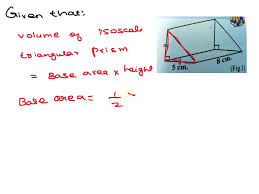 Given that:
volume of isoscal
triangular prism
= Base area x height
Base area = 1/2
5 cm.
8 cm.
(Fig i)